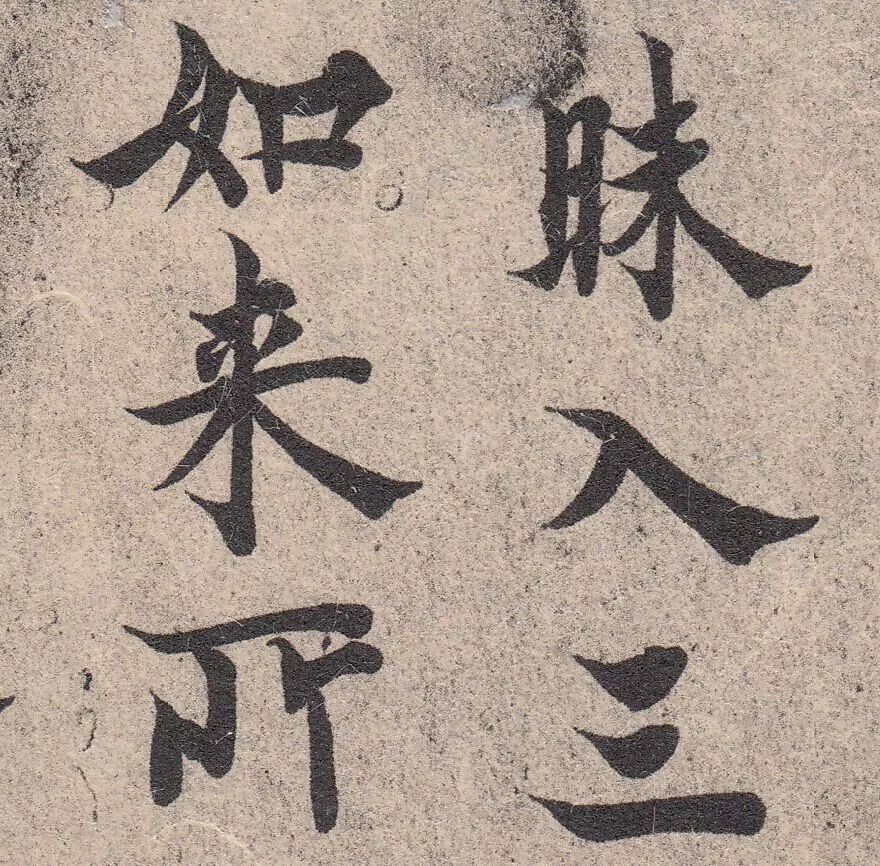 昧入三
如来所